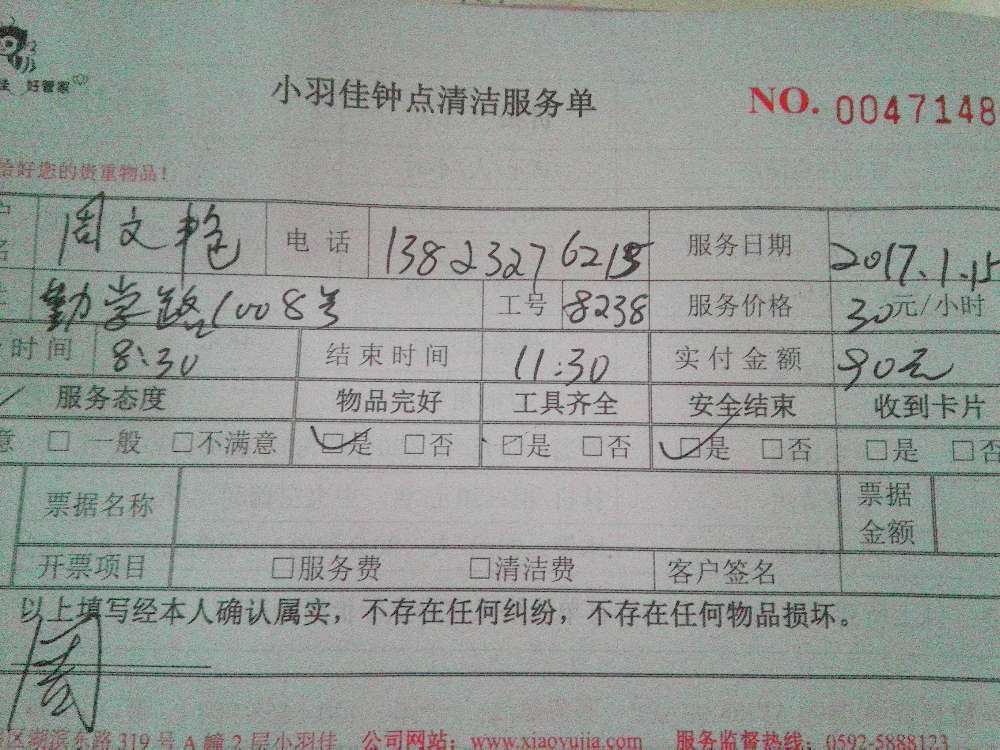 好管家
小羽佳钟点清洁服务单 NO. 0047148
您的贵重物品!
名 周文艳 电话 13823276215 服务日期 2017.1.15
勤学路1008号 工号 8238 服务价格 30元/小时
时间 8:30 结束时间 11:30 实付金额 90元
服务态度 物品完好 工具齐全 安全结束 收到卡片
意 □ 一般 □不满意 ☑是 □否 ☑是 □否 ☑是 □否 □是 □否
票据名称 票据金额
开票项目 □服务费 □清洁费 客户签名
以上填写经本人确认属实，不存在任何纠纷，不存在任何物品损坏。
周
区湖滨东路319号A幢2层小羽佳 公司网站：www.xiaoyujia.com 服务监督热线：0592-5888123